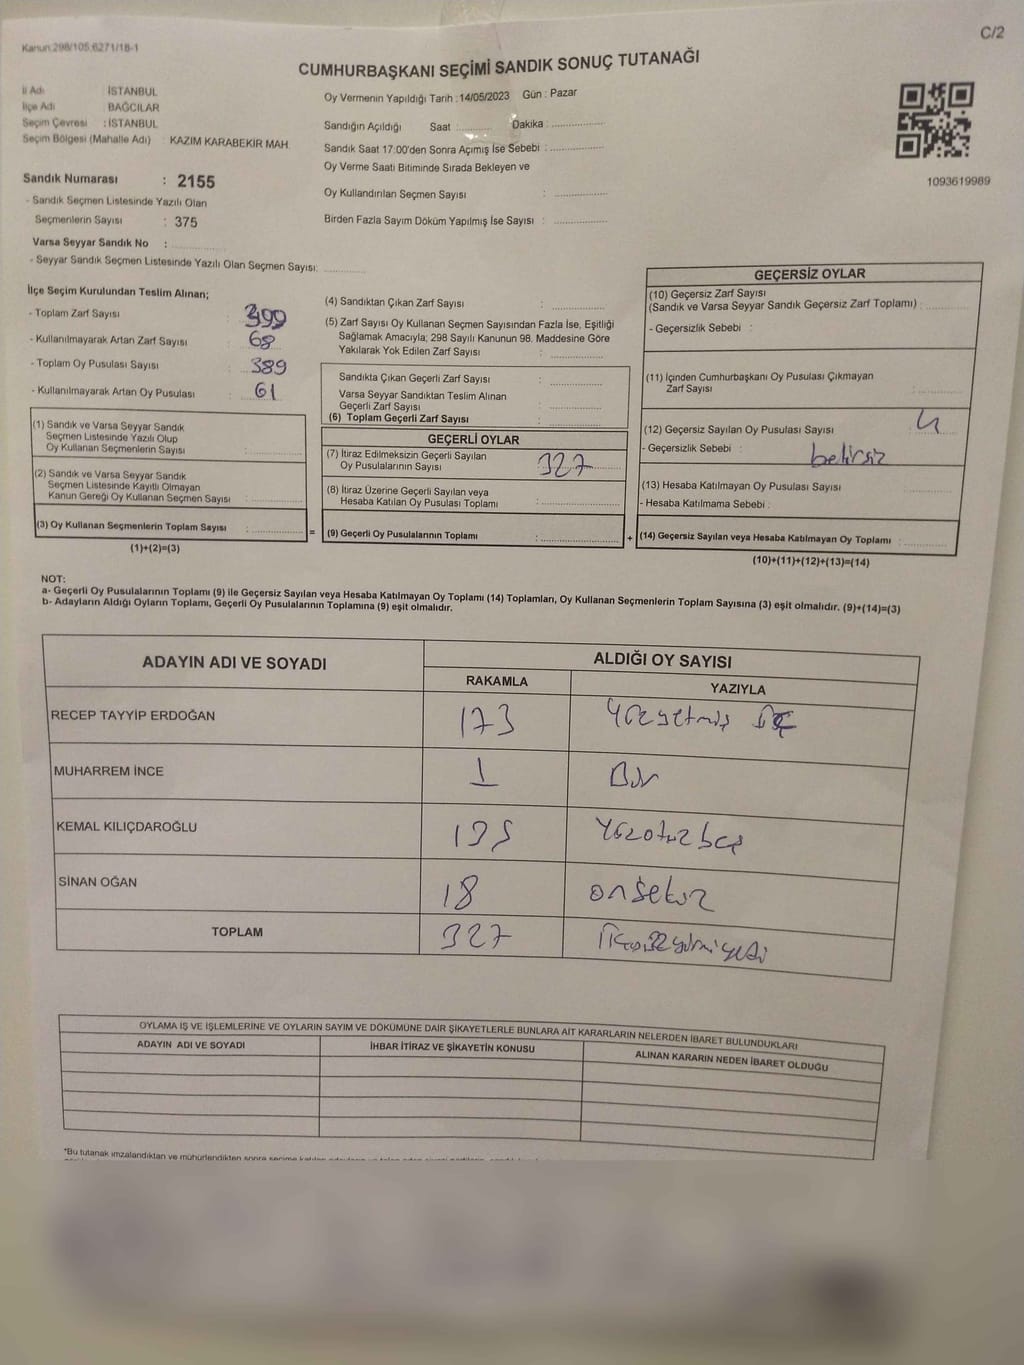 Kanun:298/105;6271/18-1
C/2
CUMHURBAŞKANI SEÇİMİ SANDIK SONUÇ TUTANAĞI
İl Adı : İSTANBUL
İlçe Adı : BAĞCILAR
Seçim Çevresi : İSTANBUL
Seçim Bölgesi (Mahalle Adı) : KAZIM KARABEKİR MAH.
Sandık Numarası : 2155
- Sandık Seçmen Listesinde Yazılı Olan
Seçmenlerin Sayısı : 375
Varsa Seyyar Sandık No :
- Seyyar Sandık Seçmen Listesinde Yazılı Olan Seçmen Sayısı:
Oy Vermenin Yapıldığı Tarih :14/05/2023 Gün : Pazar
Sandığın Açıldığı Saat : Dakika :
Sandık Saat 17:00'den Sonra Açımış İse Sebebi :
Oy Verme Saati Bitiminde Sırada Bekleyen ve
Oy Kullandırılan Seçmen Sayısı :
Birden Fazla Sayım Döküm Yapılmış İse Sayısı :
1093619989
İlçe Seçim Kurulundan Teslim Alınan;
- Toplam Zarf Sayısı : 399
- Kullanılmayarak Artan Zarf Sayısı : 68
- Toplam Oy Pusulası Sayısı : 389
- Kullanılmayarak Artan Oy Pusulası : 61
(1) Sandık ve Varsa Seyyar Sandık
Seçmen Listesinde Yazılı Olup
Oy Kullanan Seçmenlerin Sayısı :
(2) Sandık ve Varsa Seyyar Sandık
Seçmen Listesinde Kayıtlı Olmayan
Kanun Gereği Oy Kullanan Seçmen Sayısı :
(3) Oy Kullanan Seçmenlerin Toplam Sayısı : =
(1)+(2)=(3)
(4) Sandıktan Çıkan Zarf Sayısı :
(5) Zarf Sayısı Oy Kullanan Seçmen Sayısından Fazla İse, Eşitliği
Sağlamak Amacıyla; 298 Sayılı Kanunun 98. Maddesine Göre
Yakılarak Yok Edilen Zarf Sayısı :
Sandıkta Çıkan Geçerli Zarf Sayısı :
Varsa Seyyar Sandıktan Teslim Alınan
Geçerli Zarf Sayısı :
(6) Toplam Geçerli Zarf Sayısı :
GEÇERLİ OYLAR
(7) İtiraz Edilmeksizin Geçerli Sayılan
Oy Pusulalarının Sayısı : 327
(8) İtiraz Üzerine Geçerli Sayılan veya
Hesaba Katılan Oy Pusulası Toplamı :
(9) Geçerli Oy Pusulalarının Toplamı : +
GEÇERSİZ OYLAR
(10) Geçersiz Zarf Sayısı
(Sandık ve Varsa Seyyar Sandık Geçersiz Zarf Toplamı) :
- Geçersizlik Sebebi :
(11) İçinden Cumhurbaşkanı Oy Pusulası Çıkmayan
Zarf Sayısı :
(12) Geçersiz Sayılan Oy Pusulası Sayısı : 4
- Geçersizlik Sebebi : belirsiz
(13) Hesaba Katılmayan Oy Pusulası Sayısı :
- Hesaba Katılmama Sebebi :
(14) Geçersiz Sayılan veya Hesaba Katılmayan Oy Toplamı :
(10)+(11)+(12)+(13)=(14)
NOT:
a- Geçerli Oy Pusulalarının Toplamı (9) ile Geçersiz Sayılan veya Hesaba Katılmayan Oy Toplamı (14) Toplamları, Oy Kullanan Seçmenlerin Toplam Sayısına (3) eşit olmalıdır. (9)+(14)=(3)
b- Adayların Aldığı Oyların Toplamı, Geçerli Oy Pusulalarının Toplamına (9) eşit olmalıdır.
ADAYIN ADI VE SOYADI ALDIĞI OY SAYISI
RAKAMLA YAZIYLA
RECEP TAYYİP ERDOĞAN 173 Yüzyetmiş üç
MUHARREM İNCE 1 Bir
KEMAL KILIÇDAROĞLU 135 Yüzotuz beş
SİNAN OĞAN 18 onsekiz
TOPLAM 327 Üçyüzyirmiyedi
OYLAMA İŞ VE İŞLEMLERİNE VE OYLARIN SAYIM VE DÖKÜMÜNE DAİR ŞİKAYETLERLE BUNLARA AİT KARARLARIN NELERDEN İBARET BULUNDUKLARI
ADAYIN ADI VE SOYADI İHBAR İTİRAZ VE ŞİKAYETİN KONUSU ALINAN KARARIN NEDEN İBARET OLDUĞU
*Bu tutanak imzalandıktan ve mühürlendikten sonra